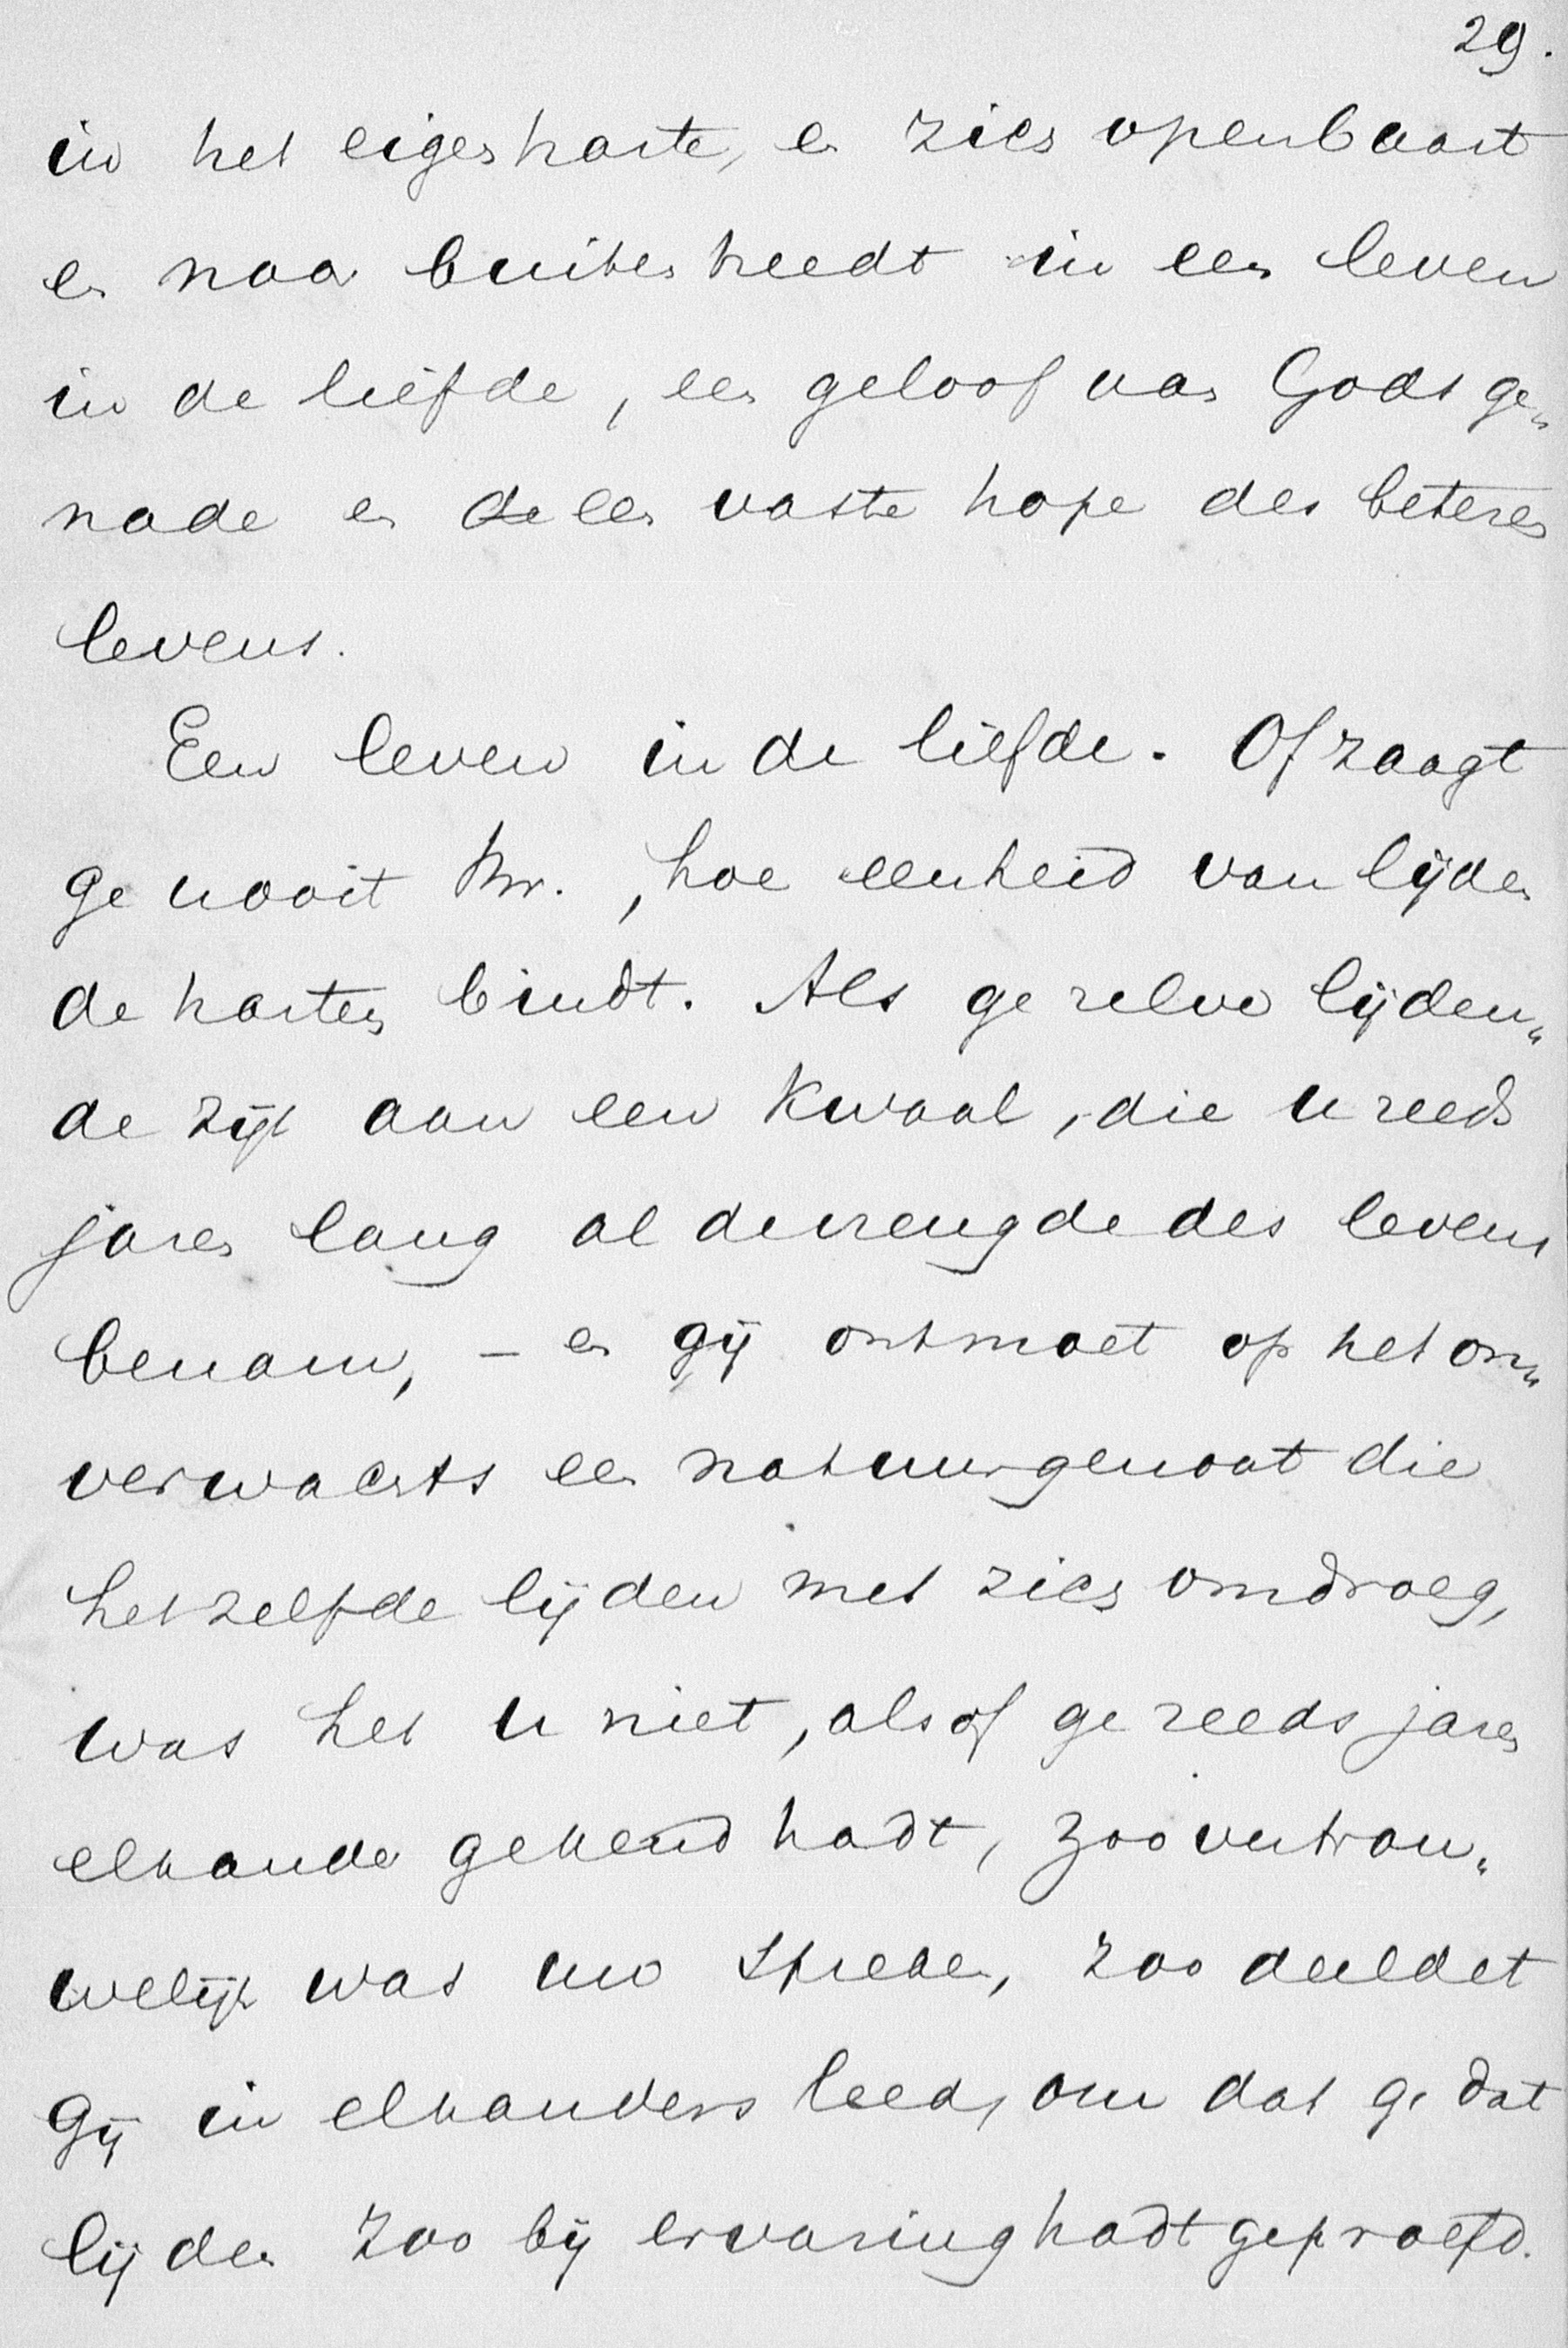 29.
in het eigen harte, en zich openbaart
en naar buiten treedt in een leven
in de liefde, een geloof van Gods ge„
nade en de een vaste hope des beteren
levens.
Een leven in de liefde. Of zaagt
ge nooit Br., hoe eenheid van lijden
de harten bindt. Als ge zelve lijden„
de zijt aan een kwaal, die u reeds
jaren lang al de vreugde des levens
benam, – en gij ontmoet op het on„
verwachts een natuurgenoot die
hetzelfde lijden met zich omdroeg,
was het u niet, alsof ge reeds jaren
elkander gekend hadt, zoo vertrou„
welijk was uw spreken, zoo deeldet
gij in elkanders leed, om dat ge dat
lijden zoo bij ervaring hadt geproefd.